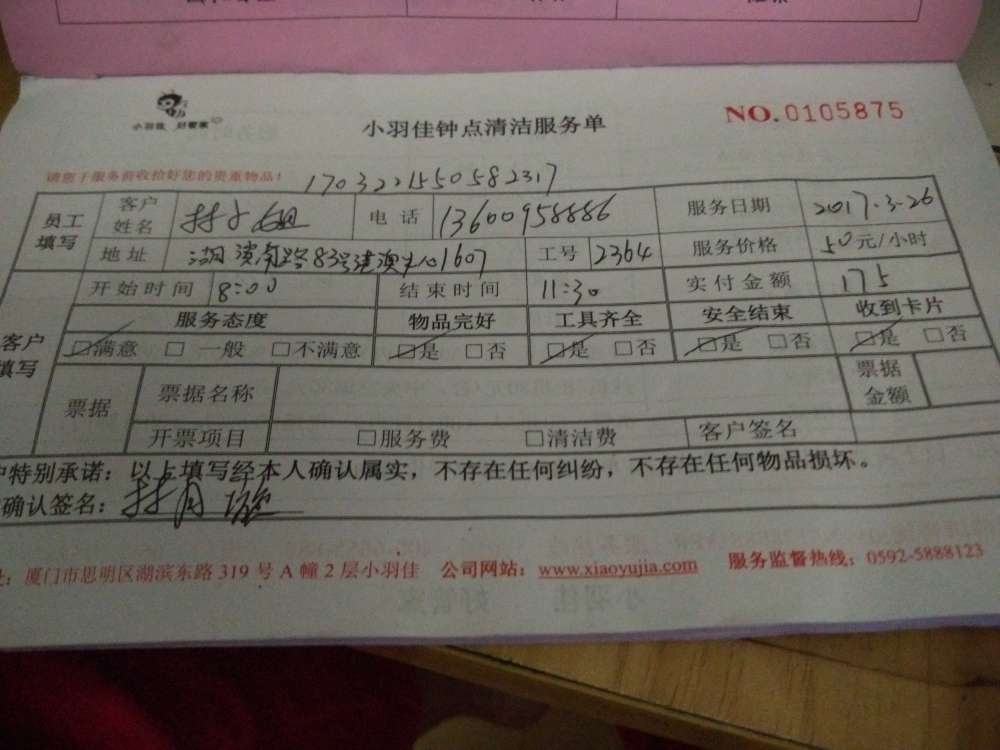 小羽佳 好管家
小羽佳钟点清洁服务单
NO.0105875
请您于服务前收拾好您的贵重物品!
170322155058 2317
员工填写 客户姓名 林小姐 电话 13600958886 服务日期 2017.3.26
地址 湖滨南路83号建澳中心1607 工号 2364 服务价格 50元/小时
开始时间 8:00 结束时间 11:30 实付金额 175
客户填写 服务态度 物品完好 工具齐全 安全结束 收到卡片
□满意 □一般 □不满意 □是 □否 □是 □否 □是 □否 □是 □否
票据 票据名称 票据金额
开票项目 □服务费 □清洁费 客户签名
户特别承诺:以上填写经本人确认属实,不存在任何纠纷,不存在任何物品损坏。
确认签名:林月
址:厦门市思明区湖滨东路 319 号 A 幢 2 层小羽佳 公司网站:www.xiaoyujia.com 服务监督热线:0592-5888123